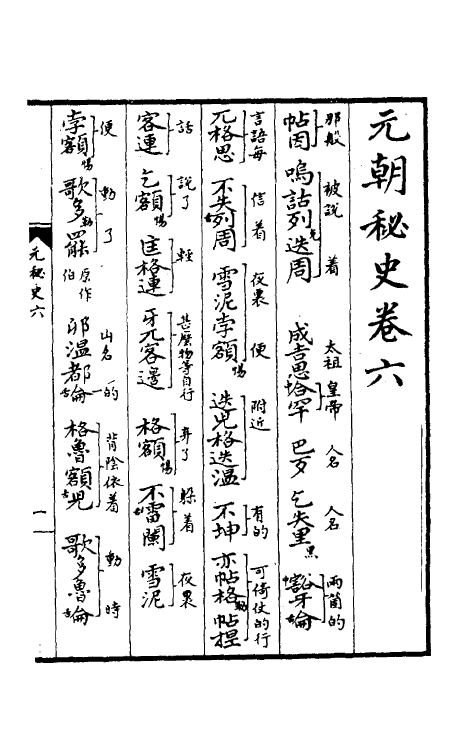 元朝秘史卷六
那般 被說着 太祖皇帝 人名 人名 兩箇的
帖因 嗚詁列兀迭周 成吉思合罕 巴歹 乞失里黑 豁牙侖
言語每 信着 夜裏 便 附近 有的 可倚仗的行
兀格思 不失列周 雪泥孛額惕 迭兒格迭溫 不坤 亦帖格勒帖捏
話 說了 輕 甚麽物等自行 弃了 躱着 夜裏
客連 乞額惕 匡格連 牙兀客邊 格額惕 不雷闌 雪泥
便 動了 山名的 背陰依着 動時
孛額惕 歌多勒罷 原作伯 卯溫都侖 格魯額兒 歌多魯侖
元秘史六
一